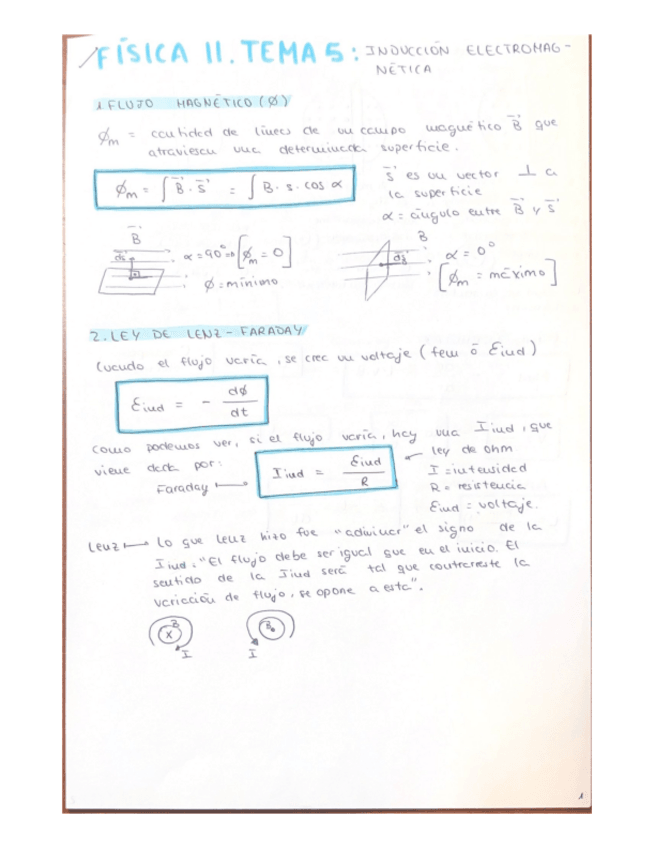 FÍSICA II. TEMA 5: INDUCCIÓN ELECTROMAG-
NÉTICA
1. FLUJO MAGNÉTICO (Ø)
Øm = cantidad de líneas de un campo magnético B⃗ que
atraviesan una determinada superficie.
Øm = ∫ B⃗ · s⃗ = ∫ B · s · cos α
s⃗ es un vector ⊥ a
la superficie
α = ángulo entre B⃗ y s⃗
B⃗
ds⃗
α = 90° => [Øm = 0]
Ø = mínimo
B⃗
ds⃗
α = 0°
[Øm = máximo]
2. LEY DE LENZ - FARADAY
Cuando el flujo varía, se crea un voltaje (fem ó Ɛind)
Ɛind = - dØ/dt
Como podemos ver, si el flujo varía, hay una Iind, que
viene dada por:
Faraday ↦ Iind = Ɛind/R
← ley de Ohm
I = intensidad
R = resistencia
Ɛind = voltaje.
Lenz ↦ Lo que Lenz hizo fue "adivinar" el signo de la
Iind. "El flujo debe ser igual que en el inicio. El
sentido de la Iind será tal que contrarreste la
variación de flujo, se opone a esta".
B
X
I
B
I
1